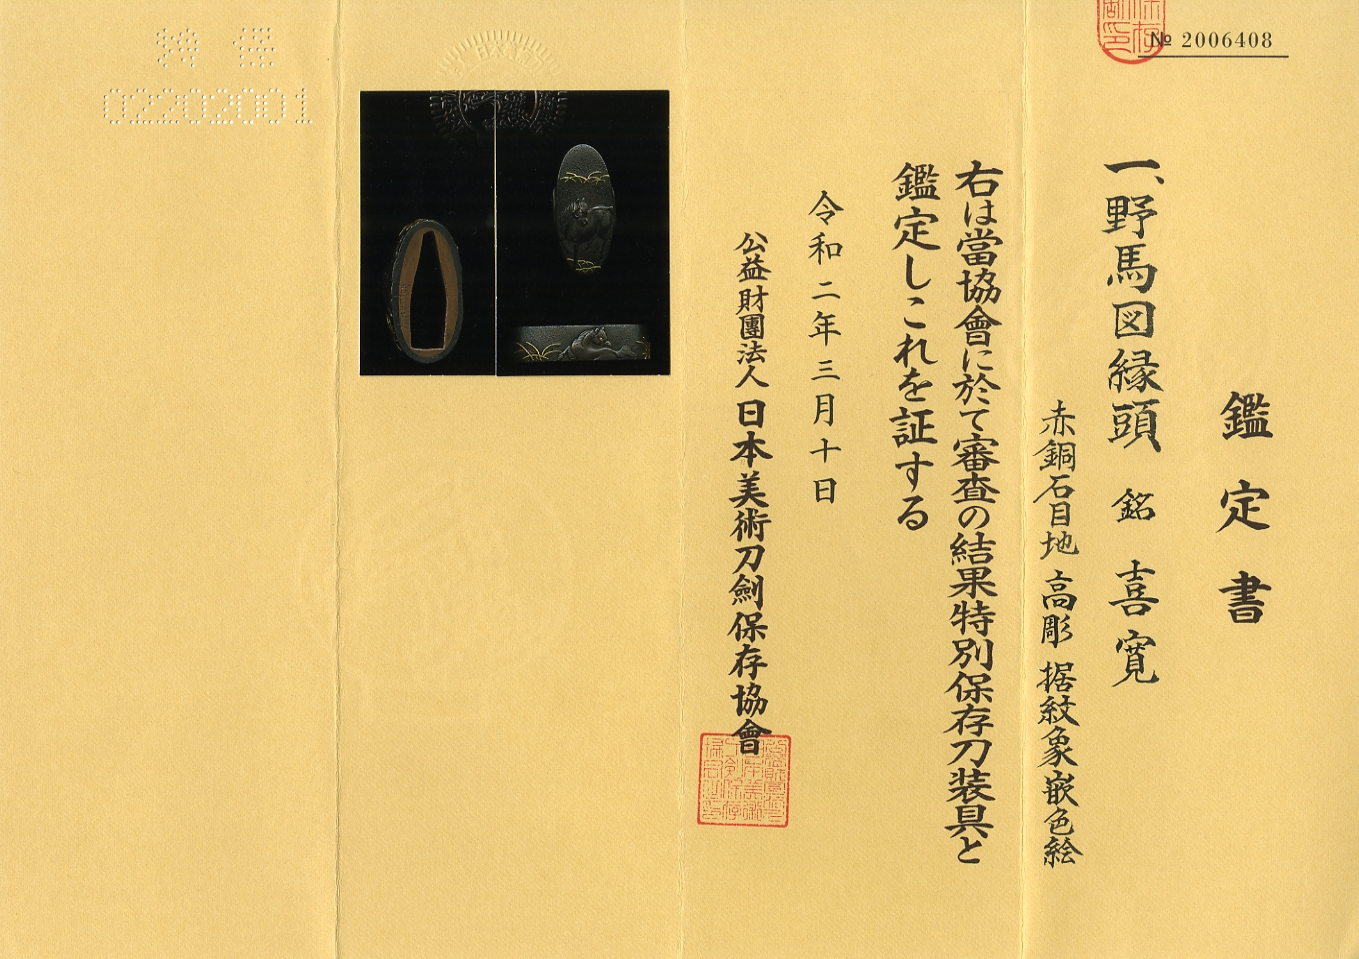 № 2006408
鑑定書
一、野馬図縁頭 銘 喜寛
赤銅石目地 高彫 据紋象嵌色絵
右は當協會に於て審査の結果特別保存刀装具と
鑑定しこれを証する
令和二年三月十日
公益財團法人 日本美術刀劍保存協會
特保
02202001